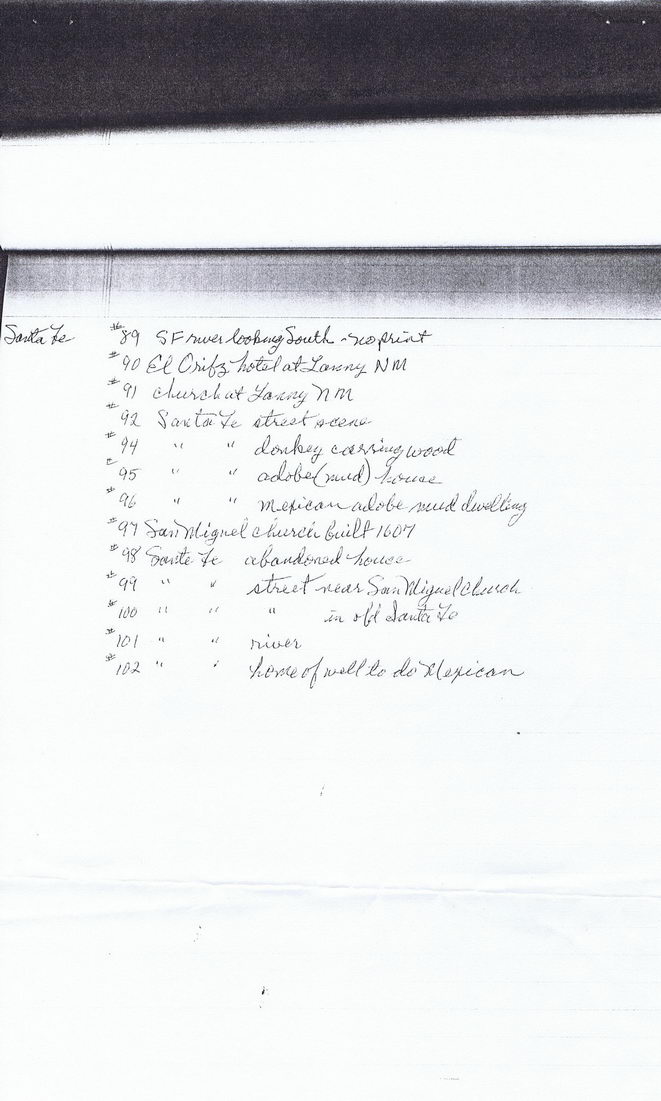 Santa Fe #89 SF river looking South - no print
#90 El Ortiz hotel at Lanny NM
#91 church at Lanny NM
#92 Santa Fe street scene
#94 " " donkey carring wood
#95 " " adobe (mud) house
#96 " " mexican adobe mud dwelling
#97 San Miguel church built 1607
#98 Sante Fe abandoned house
#99 " " street near San Miguel church
#100 " " " in old Santa Fe
#101 " " river
#102 " " home of well to do Mexican